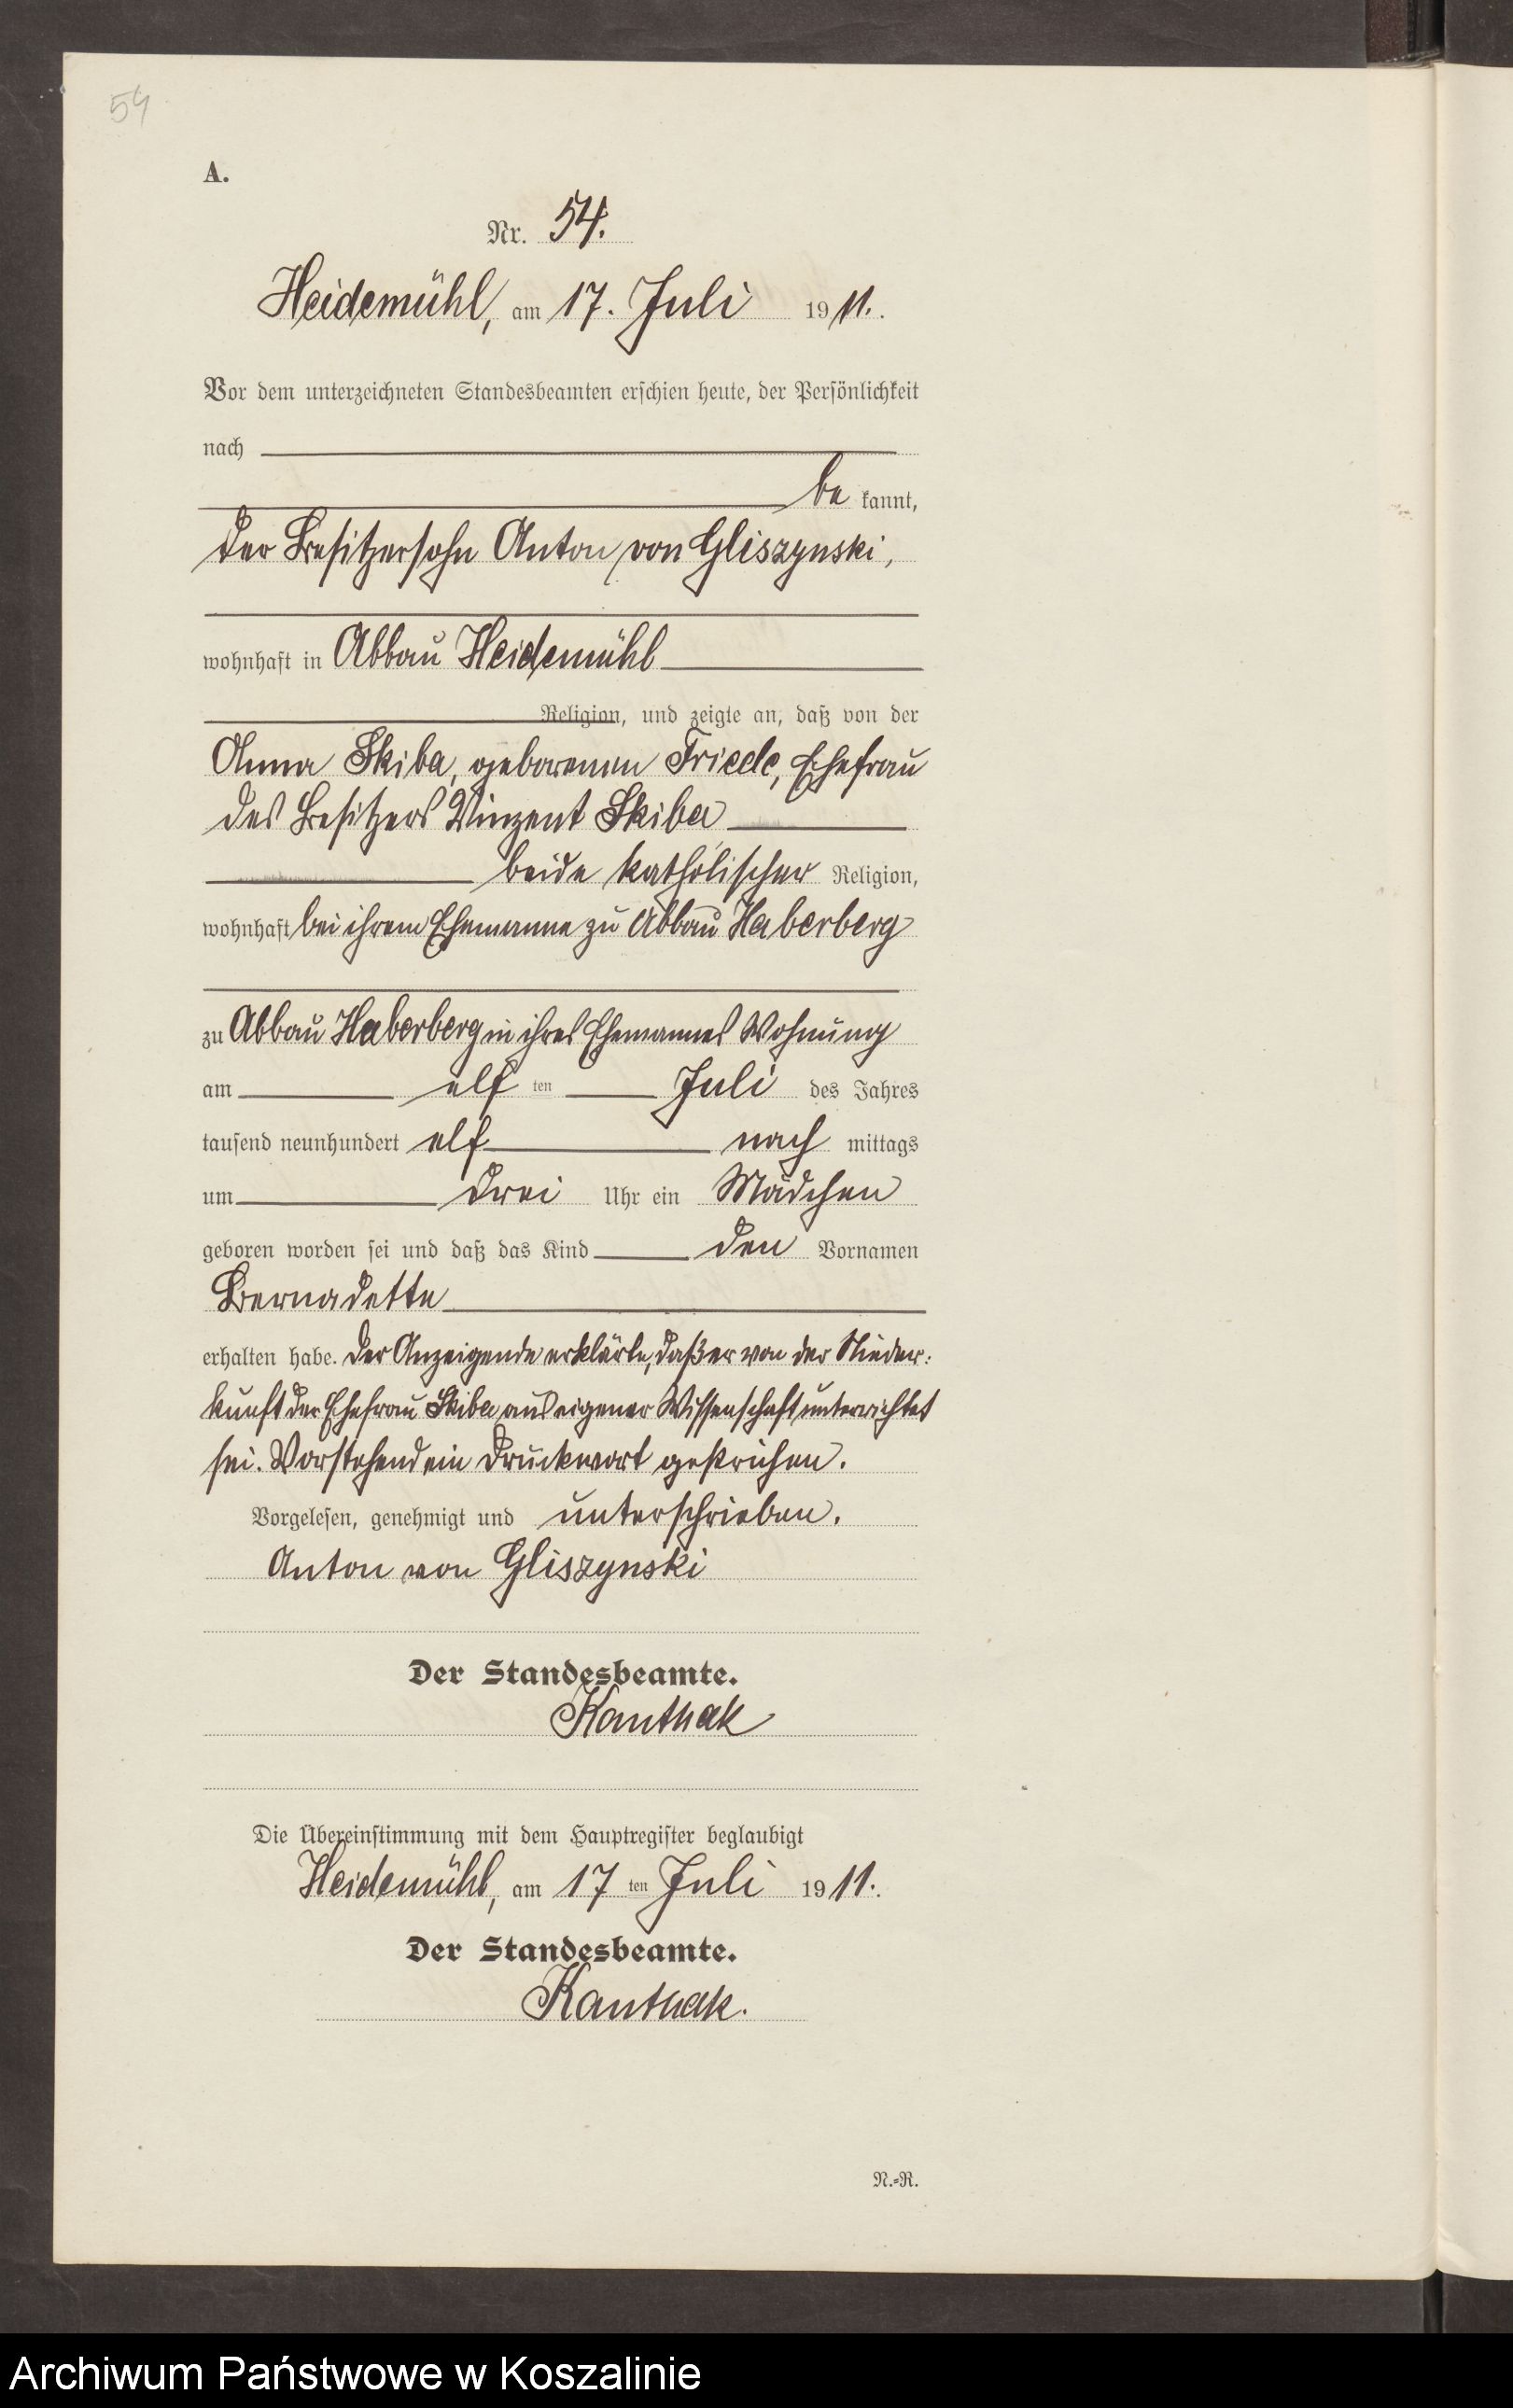 54
A.
Nr. 54.
Heidemühl, am 17. Juli 1911.
Vor dem unterzeichneten Standesbeamten erschien heute, der Persönlichkeit
nach
be kannt,
der Besitzersohn Anton von Gliszynski,
wohnhaft in Abbau Heidemühl
Religion, und zeigte an, daß von der
Anna Skiba, geborenen Friede, Ehefrau
des Besitzers Vinzent Skiba
beide katholischer Religion,
wohnhaft bei ihrem Ehemanne zu Abbau Haberberg
zu Abbau Haberberg in ihres Ehemannes Wohnung
am elf ten Juli des Jahres
tausend neunhundert elf nach mittags
um drei Uhr ein Mädchen
geboren worden sei und daß das Kind den Vornamen
Bernadette
erhalten habe. Der Anzeigende erklärte, daß er von der Nieder:
kunft der Ehefrau Skiba aus eigener Wissenschaft unterrichtet
sei. Vorstehend ein Druckwort gestrichen.
Vorgelesen, genehmigt und unterschrieben.
Anton von Gliszynski
Der Standesbeamte.
Kanthak
Die Übereinstimmung mit dem Hauptregister beglaubigt
Heidemühl, am 17 ten Juli 1911.
Der Standesbeamte.
Kanthak.
N.=R.
Archiwum Państwowe w Koszalinie